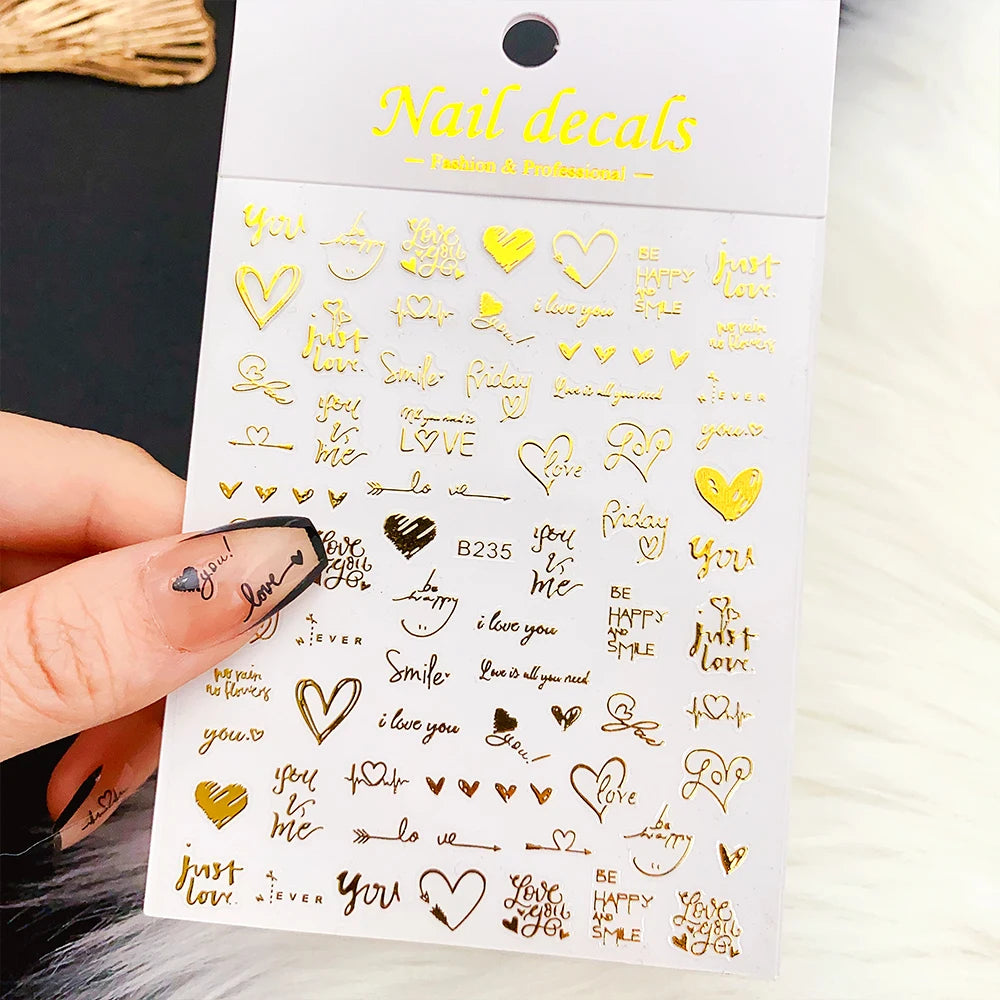 Nail decals
— Fashion & Professional —
you
be
happy
Love
you
BE
HAPPY
AND
SMILE
just
love.
just
love.
you!
i love you
no rain
no flowers
Smile
friday
Love is all you need
NEVER
you
&
me
All you need is
LOVE
love
Love
you.
lo ve
friday
you
love
you
B235
you
&
me
be
happy
BE
HAPPY
AND
SMILE
just
love.
you!
love
NEVER
i love you
no rain
no flowers
Smile
Love is all you need
you.
i love you
you!
you
&
me
love
Love
lo ve
be
happy
just
love.
NEVER
you
Love
you
BE
HAPPY
AND
SMILE
Love
you